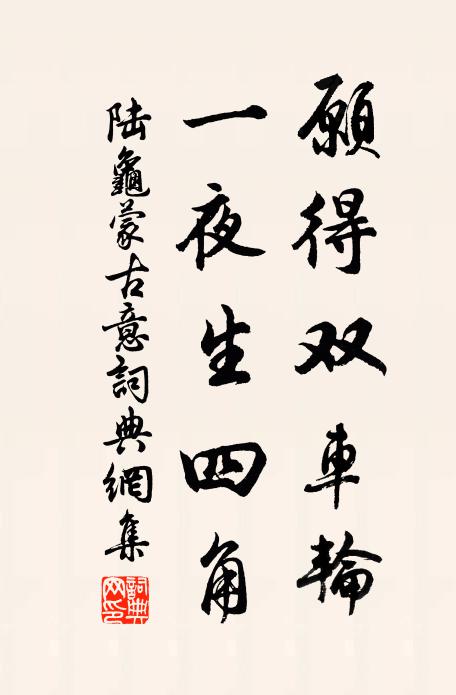 願得双車輪
一夜生四角
陆龜蒙古意詞典網集
詞典网印